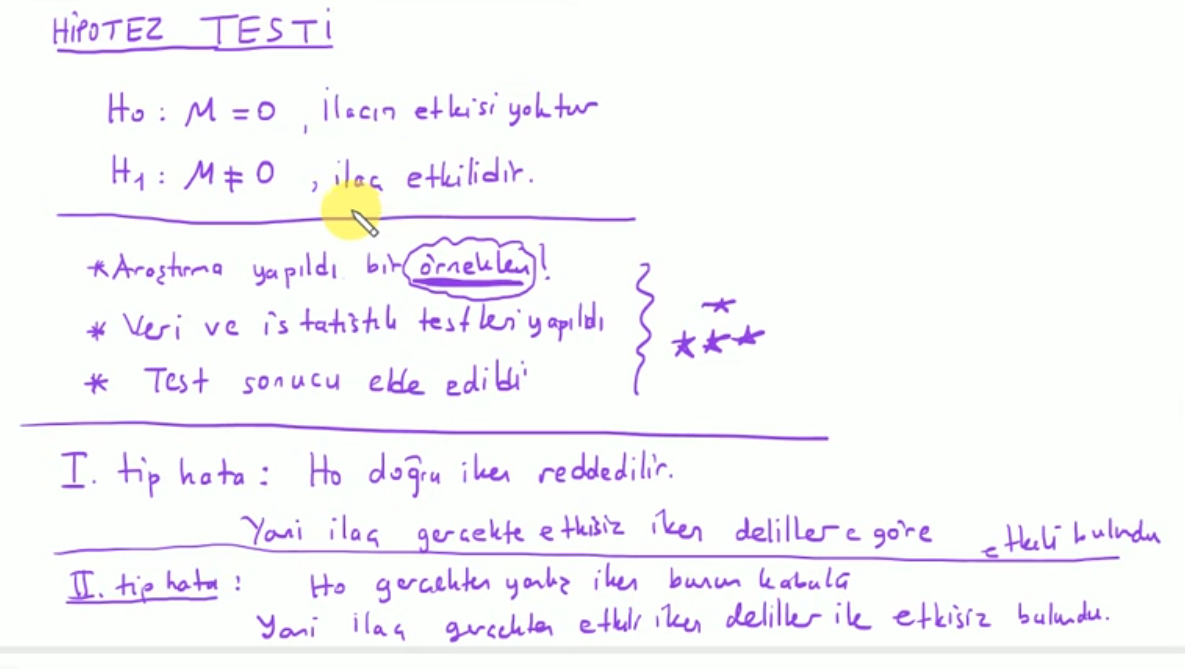 HİPOTEZ TESTİ
H0 : M = 0 , ilacın etkisi yoktur
H1 : M ≠ 0 , ilaç etkilidir.
* Araştırma yapıldı bir örneklem!
* Veri ve istatistik testleri yapıldı
* Test sonucu elde edildi
I. tip hata : H0 doğru iken reddedilir.
Yani ilaç gerçekte etkisiz iken delillere göre etkili bulundu
II. tip hata : H0 gerçekten yanlış iken bunun kabulü
Yani ilaç gerçekten etkili iken deliller ile etkisiz bulundu.